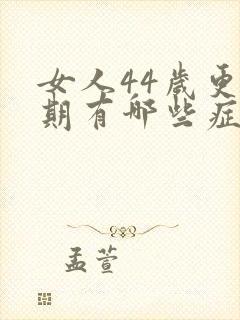 女人44岁更
期有哪些症
孟萱